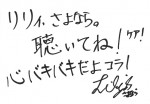 リリィ、さよなら。
聴いてね!
ケア!
心バキバキだよコラ!